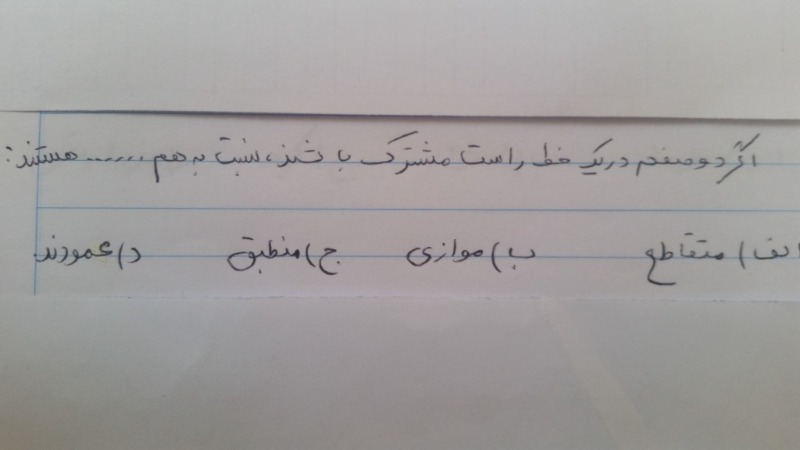 اگر دو صفحه در یک خط راست مشترک باشند، نسبت به هم ...... هستند:
الف) متقاطع ب) موازی ج) منطبق د) عمودند